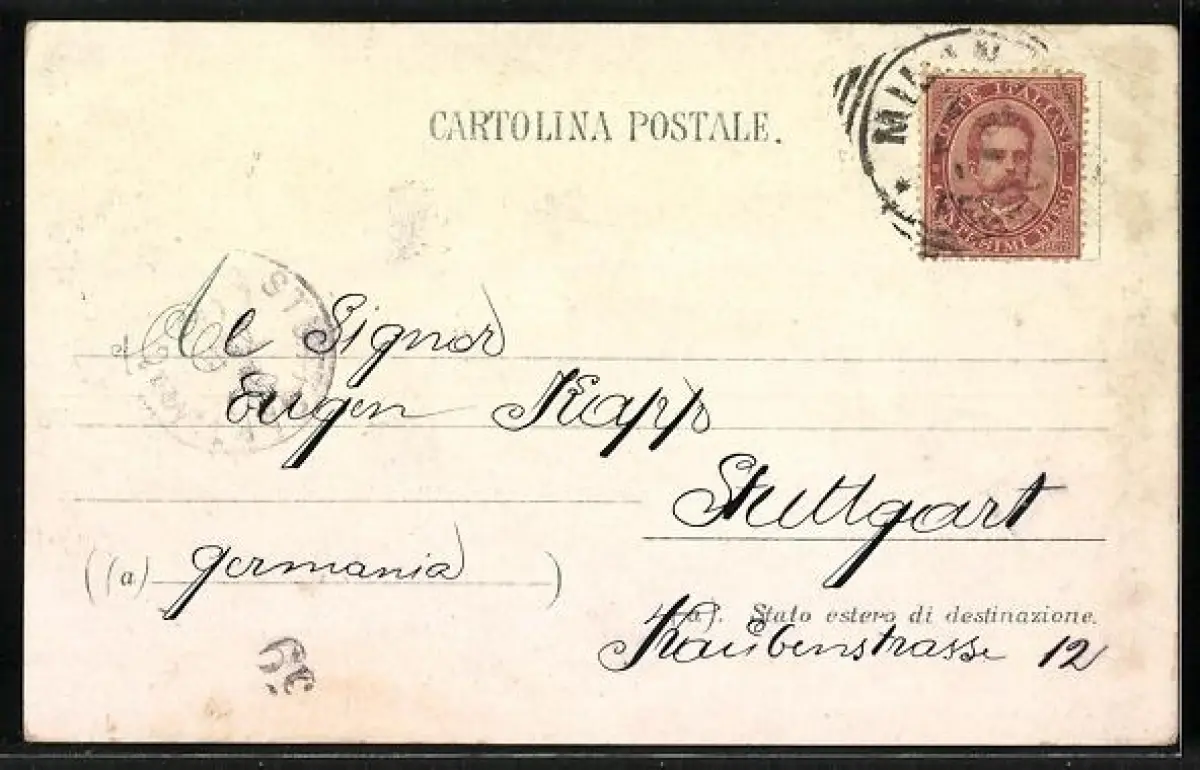 CARTOLINA POSTALE.
MILANO
POSTE ITALIANE
CENTESIMI DIECI
Al Signor
Eugen Kapp
Stuttgart
((a) germania)
(a). Stato estero di destinazione.
12